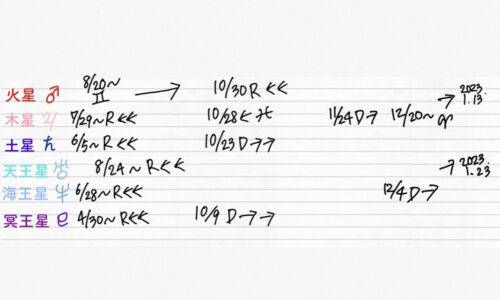 火星 ♂ 8/20~ ♊ → 10/30 R << → 2023. 1.13.
木星 ♃ 7/29~R<< 10/28< ♓ 11/24 D→ 12/20~ ♈
土星 ♄ 6/5~R<< 10/23 D→→
天王星 ♅ 8/24~R<< → 2023. 1.23
海王星 ♆ 6/28~R<< 12/4 D→
冥王星 ♇ 4/30~R<< 10/9 D→→